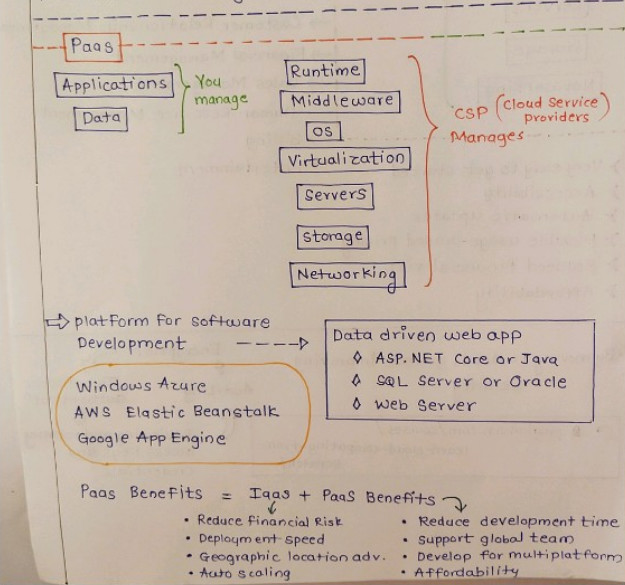 Paas
Applications
Data
You manage
Runtime
Middleware
OS
Virtualization
Servers
Storage
Networking
CSP (Cloud Service providers)
Manages
platform for software
Development
Data driven web app
ASP.NET Core or Java
SQL Server or Oracle
Web Server
Windows Azure
AWS Elastic Beanstalk
Google App Engine
Paas Benefits = Iaas + PaaS Benefits
• Reduce Financial Risk
• Deployment speed
• Geographic location adv.
• Auto scaling
• Reduce development time
• Support global team
• Develop for multiplatform
• Affordability